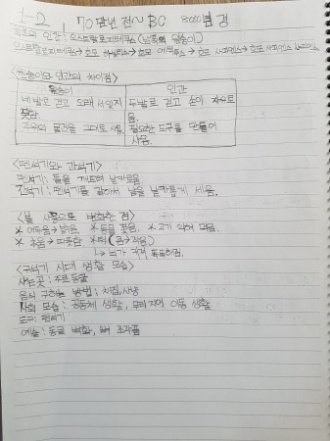 1-2 70만년 전~BC 8000년 경
최초의 인간 : 오스트랄로피테쿠스 (남쪽의 원숭이)
오스트랄로피테쿠스→호모 하빌리스→호모 에렉투스→호모 사피엔스→호모 사피엔스 사피엔스
<원숭이와 인간의 차이점>
원숭이 인간
네 발로 걷고 오래 서있지 못함. 두발로 걷고 손이 자유로움.
주위의 물건을 그대로 사용 필요한 도구를 만들어 사용.
<뗀석기와 간석기>
뗀석기 : 돌을 깨뜨려 날카로움
간석기 : 뗀석기를 갈아서 날을 날카롭게 세움.
<불 사용으로 변화한 점>
* 어두움→밝음 * 동물 쫓음. * 고기 익혀 먹음.
* 추움→따뜻함 * 턱(큼→작음)
↳ 뇌가 커져 똑똑해짐.
<구석기 시대 생활 모습>
사는곳 : 주로 동굴
음식 구하는 방법 : 채집, 사냥
사회 모습 : 공동체 생활, 무리지어 이동 생활
도구 : 뗀석기
예술 : 동굴 벽화, 조각품